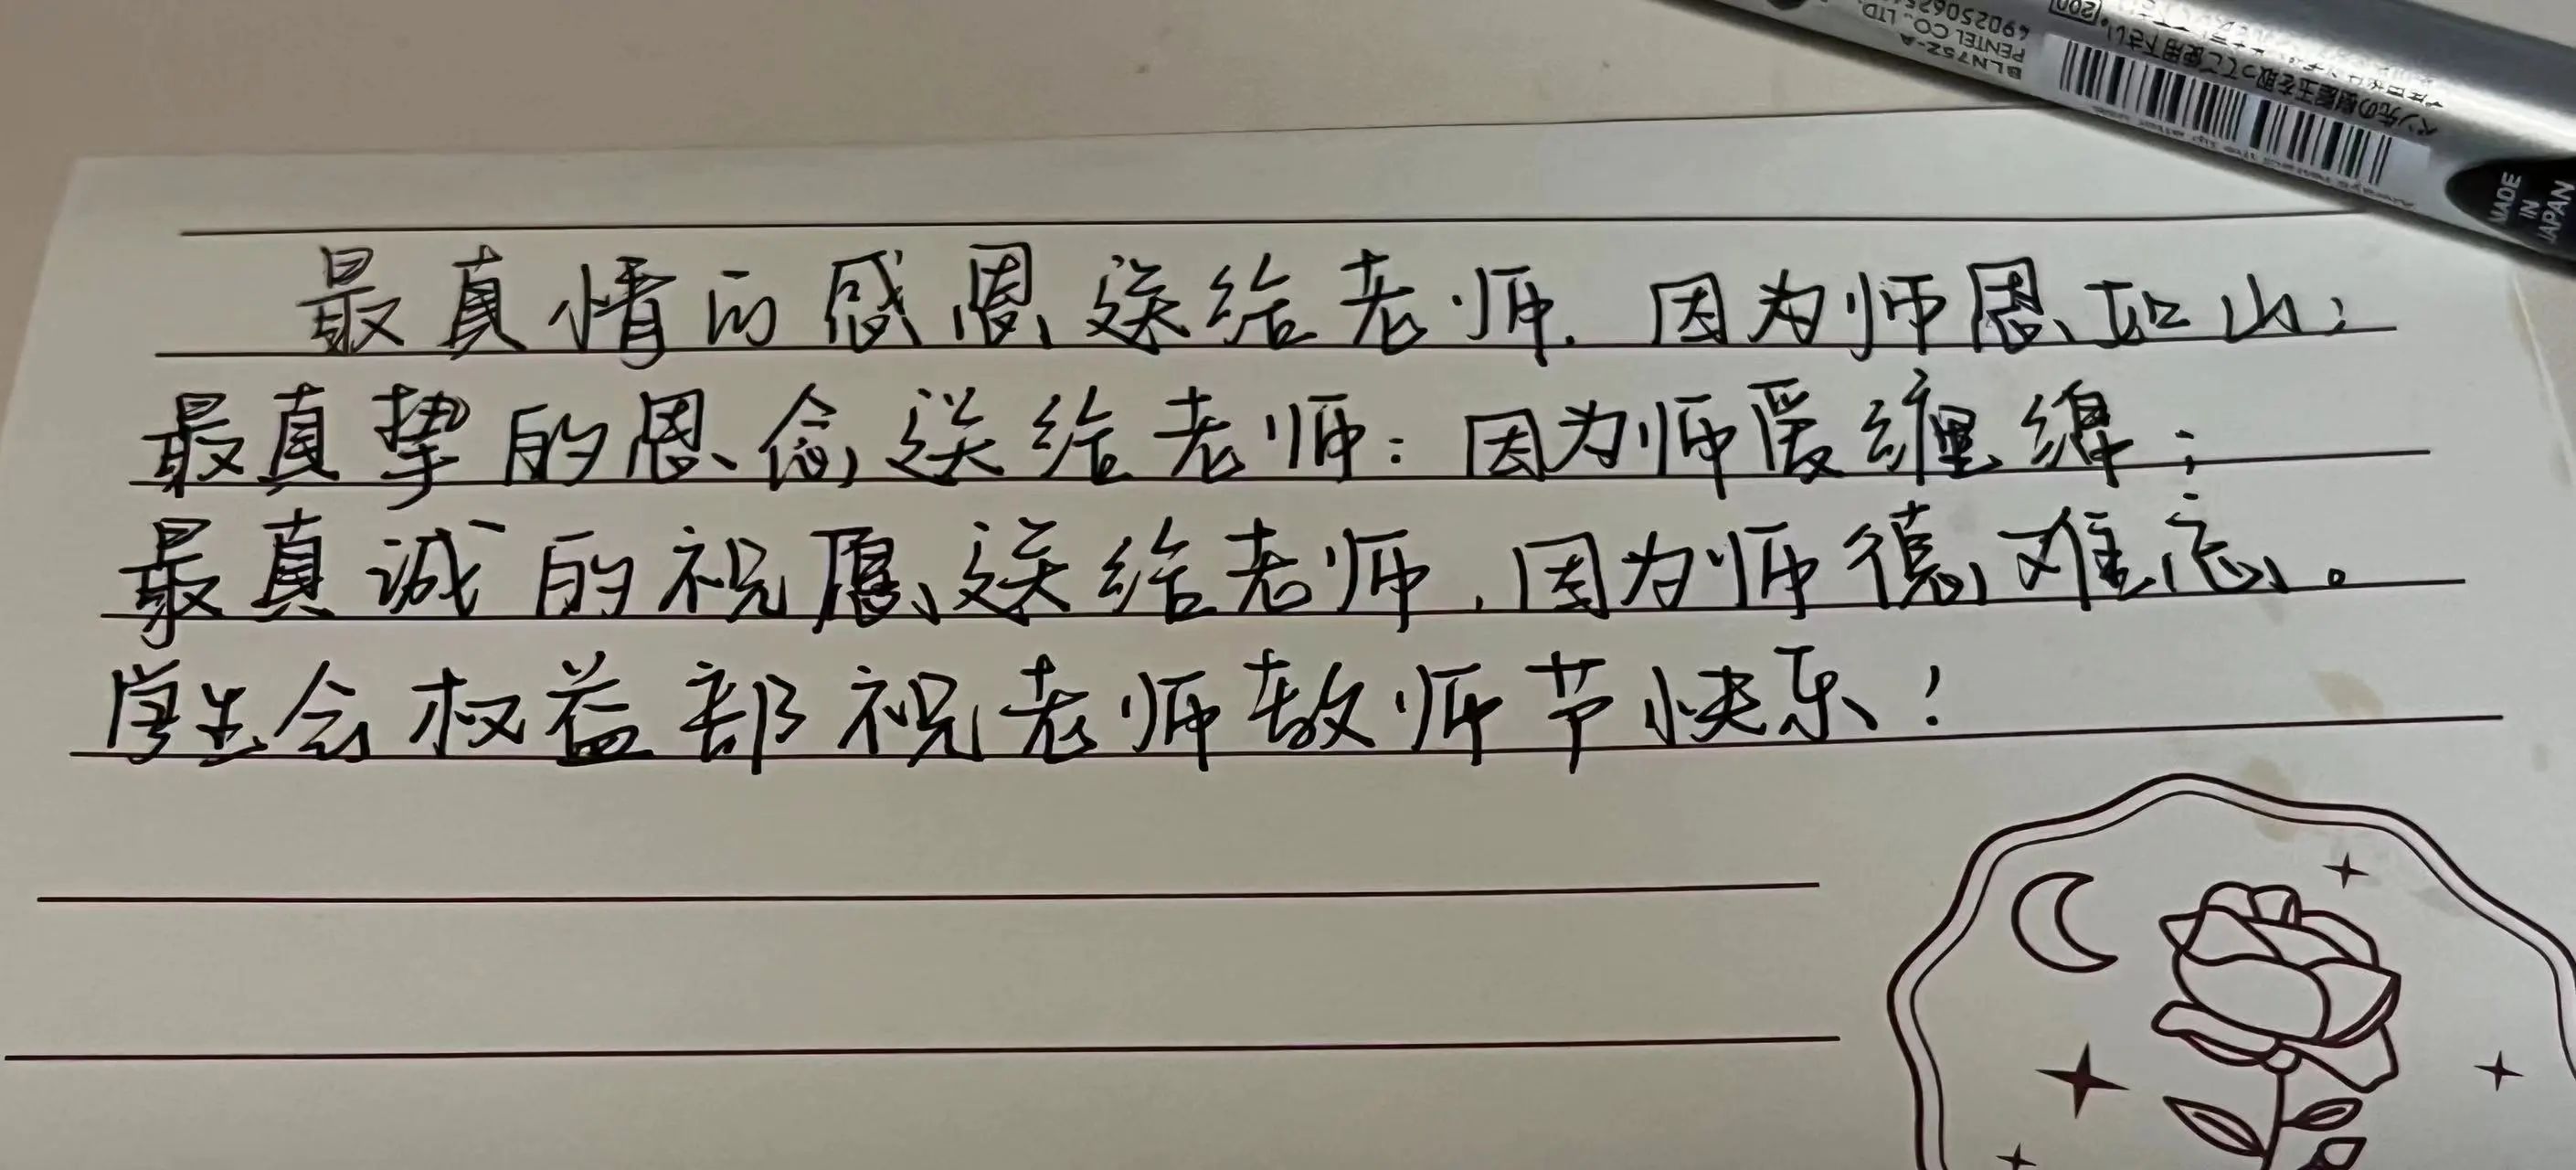 最真情的感恩送给老师，因为师恩如山；
最真挚的恩念送给老师：因为师爱缠绵；
最真诚的祝愿送给老师，因为师德难忘。
学生会权益部祝老师教师节快乐！
BLN75Z-A
PENTEL CO., LTD.
ペン先の樹脂玉を取ってご使用下さい。
MADE
IN
JAPAN